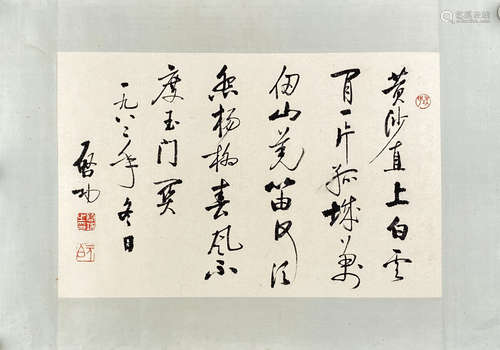 黄沙直上白云
间一片孤城万
仞山羌笛何须
怨杨柳春风不
度玉门关
一九八二年冬日
启功